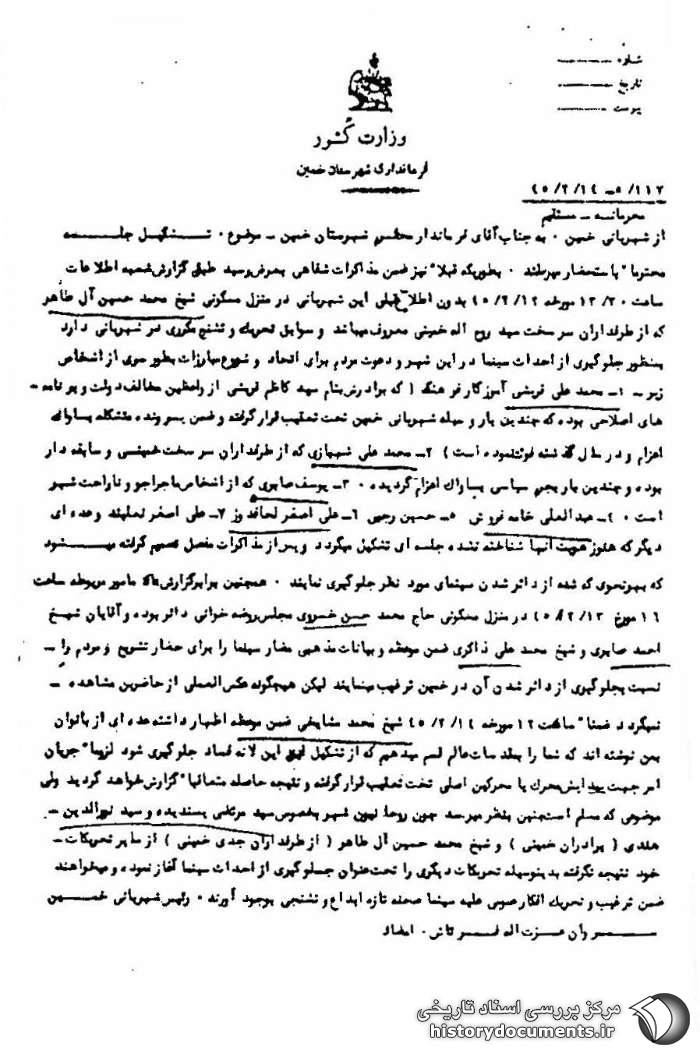 شماره
تاریخ
پیوست
وزارت کشور
فرمانداری شهرستان خمین
۵/۱۱۲ – ۴۵/۲/۱۴
محرمانه – مستقیم
از شهربانی خمین ۰ به جناب آقای فرماندار محترم شهرستان خمین – موضوع ۰ تشکیل جلسه
محترما" باستحضار میرساند ۰ بطوریکه قبلا" نیز ضمن مذاکرات شفاهی بعرض رسید طبق گزارش شعبه اطلاعات
ساعت ۱۳/۲۰ مورخه ۴۵/۲/۱۲ بدون اطلاع قبلی این شهربانی در منزل مسکونی شیخ محمد حسین آل طاهر
که از طرفداران سر سخت سید روح اله خمینی معروف میباشد و سوابق تحریک و تشنج مکرری در شهربانی دارد
بمنظور جلوگیری از احداث سینما در این شهر و دعوت مردم برای اتحاد و شروع مبارزات بطور سری از اشخاص
زیر – ۱– محمد علی قریشی آموزگار فرهنگ ( که برادرش بنام سید کاظم قریشی از واعظین مخالف دولت و برنامه –
های اصلاحی بوده که چندین بار وسیله شهربانی خمین تحت تعقیب قرار گرفته و ضمن پرونده متشکله بساواک
اعزام و در سال گذشته فوت نموده است ) ۲– محمد علی شهبازی که از طرفداران سر سخت خمینی و سابقه دار
بوده و چندین بار بجرم سیاسی بساواک اعزام گردیده ۰ ۳– یوسف صابری که از اشخاص ماجراجو و ناراحت شهر
است ۰ ۴– عبدالعلی خامه فروش ۵– حسین رجبی ۶– علی اصغر لحافدوز ۷– علی اصغر و عده ای
دیگر که هنوز هویت آنها شناخته نشده جلسه ای تشکیل میگردد و پس از مذاکرات مفصل تصمیم گرفته میشود
که بهر نحوی که شده از دائر شدن سینمای مورد نظر جلوگیری نمایند ۰ همچنین برابر گزارش مامور مربوطه ساعت
۱۶ مورخ ۴۵/۲/۱۳ در منزل مسکونی حاج محمد حسن خسروی مجلس روضه خوانی دائر بوده و آقایان شیخ
احمد صابری و شیخ محمد علی ذاکری ضمن موعظه و بیانات مذهبی مضار سینما را برای حضار تشریح و مردم را –
نسبت بجلوگیری از دائر شدن آن در خمین ترغیب مینمایند لیکن هیچگونه عکس العملی از حاضرین مشاهده –
نمیگردد ضمنا" ساعت ۱۲ مورخه ۴۵/۲/۱۴ شیخ محمد مشایخی ضمن موعظه اظهار داشته عده ای از بانوان
بمن نوشته اند که شما را بمقدسات عالم قسم میدهیم که از تشکیل این لانه فساد جلوگیری شود جریان
امر جهت پیدایش محرک یا محرکین اصلی تحت تعقیب قرار گرفته و نتیجه حاصله متعاقبا" گزارش خواهد گردید ولی
موضوعی که مسلم است چنین بنظر میرسد چون روحانیون شهر بخصوص سید مرتضی پسندیده و سید نورالدین –
هندی ( برادران خمینی ) و شیخ محمد حسین آل طاهر ( از طرفداران جدی خمینی ) از سایر تحریکات –
خود نتیجه نگرفته بدینوسیله تحریکات دیگری را تحت عنوان جلوگیری از احداث سینما آغاز نموده و میخواهند
ضمن ترغیب و تحریک افکار عمومی علیه سینما صحنه تازه ابداع و تشنجی بوجود آورند ۰ رئیس شهربانی خمین
سروان عزت اله ۰ امضاء
مرکز بررسی اسناد تاریخی
historydocuments.ir